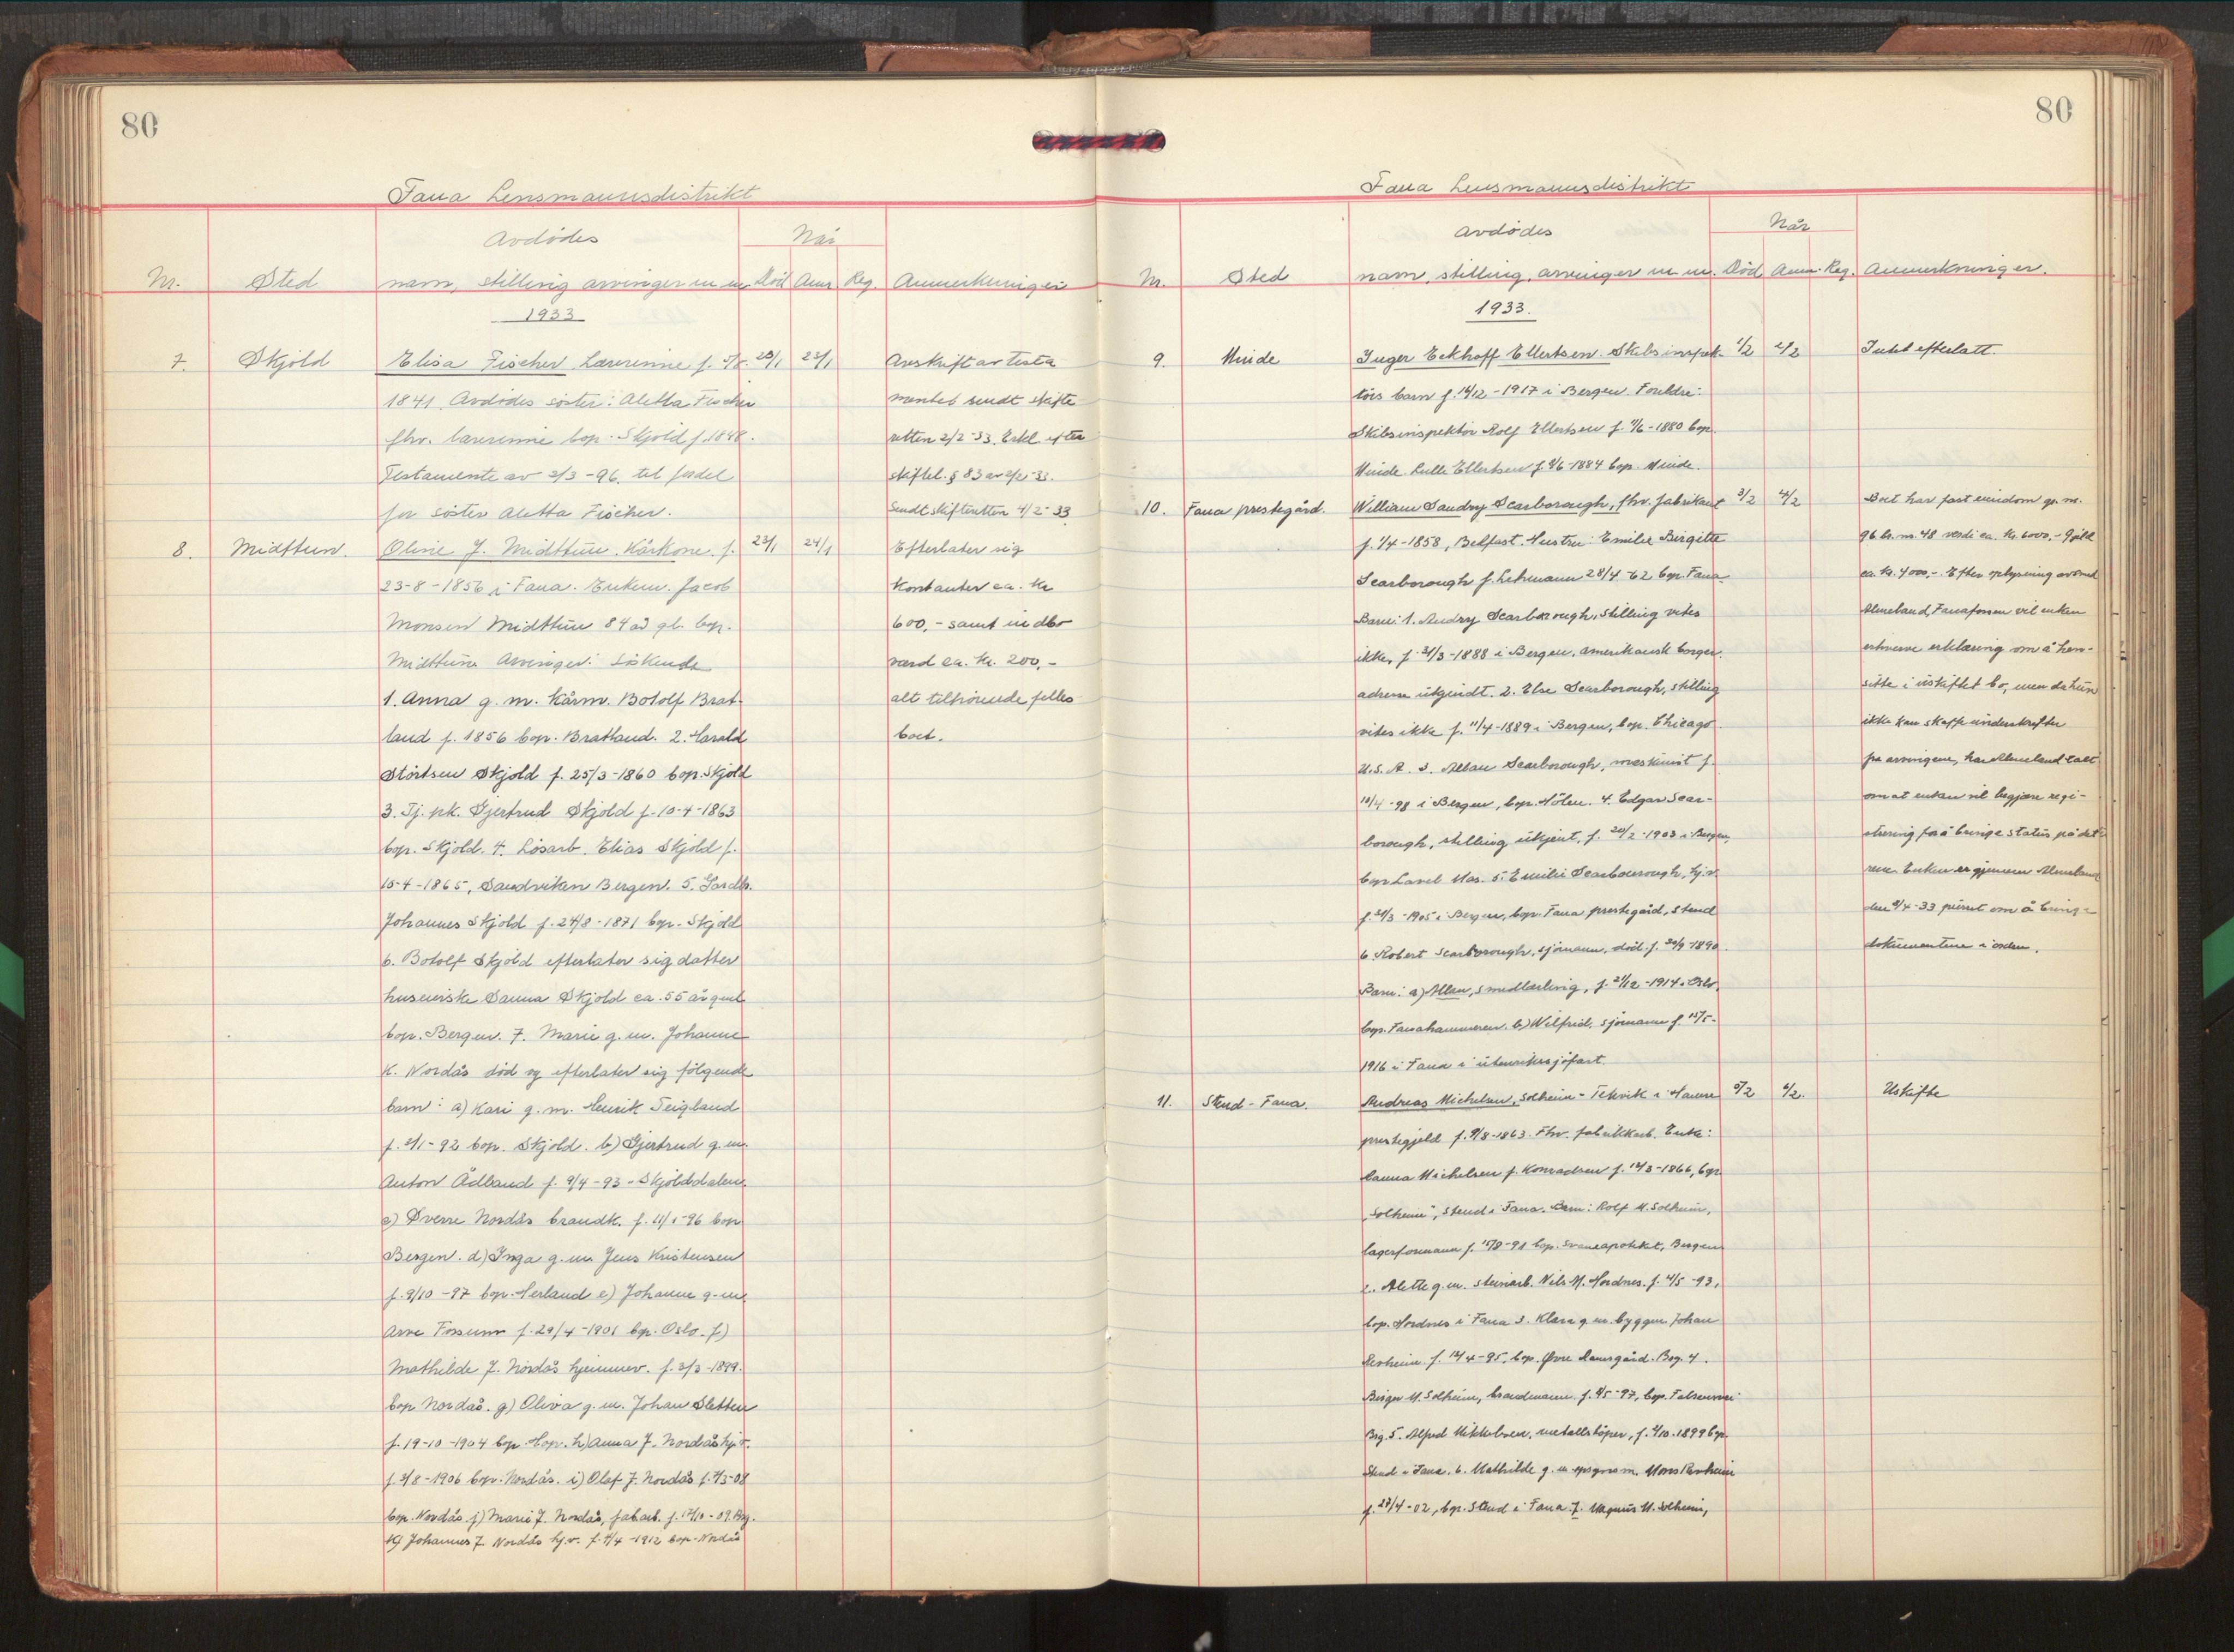 80
Fana Lensmannsdistrikt
Avdødes
Når
Nr.
Sted
navn, stilling arvinger m m
Död
Anm
Reg.
Anmerkninger
1933
7.
Skjold
Elisa Fischer Lærerinne f.
1841. Avdödes söster: Aletta Fischer
fhv. lærerinne bop. Skjold f. 1848.
Testamente av 2/3-96 til fordel
for söster Aletta Fischer.
23/1
Avskrift av testa
mentet sendt skifte
retten 2/2-33. Erkl. efter
skiftel. § 83 av
Sendt skifteretten 4/2-33
8.
Midttun.
Oline J. Midttun. Kårkone f.
23/1
24/1
23-8-1856 i Fana. Enkem. Jacob
Monsen Midttun 84 år gl. bop.
Midttun. Arvinger: Söskende
1. Anna g. m. Kårm. Botolf Brat-
land f. 1856 bop. Bratland. 2. Harald
Störksen Skjold f. 25/3-1860 bop. Skjold
3. Tj. pk. Gjertrud Skjold f. 10-4-1863
bop. Skjold. 4. Lösarb. Elias Skjold f.
15-4-1865, Sandviken Bergen. 5. Gardbr.
Johannes Skjold f. 24/8-1871 bop. Skjold
6. Botolf Skjold efterlater sig datter
huseierske Sanna Skjold ca. 55 år gml.
bop. Bergen. 7. Marie g. m. Johannes
K. Nordås död og efterlater sig fölgende
barn: a) Kari g. m. Henrik Teigland
f. 2/1-92 bop. Skjold. b) Gjertrud g. m.
Anton Ådland f. 9/4-93 - Skjolddalen.
c) Sverre Nordås brandk. f. 11/1-96 bop
Bergen. d) Inga g. m. Jens Kristensen
f. 9/10-97 bop. Nerland e) Johanne g. m.
Arne Fossum f. 29/4-1901 bop. Oslo. f)
Mathilde J. Nordås hjemmev. f. 3/3-1899.
bop Nordås. g) Oliva g. m. Johan Sletten
f. 19-10-1904 bop. Hop. h) Anna J. Nordås hj.v.
f. 3/8-1906 bop. Nordås. i) Olaf J. Nordås f. 7/5-08
bop. Nordås j) Marie J. Nordås, fabarb. f. 17/10-09. Brg.
k) Johannes J. Nordås hj.v. f. 4/4-1912 bop. Nordås
Efterlater sig
Kontanter ca. Kr
600,- samt indbo
værd ca. Kr. 200,-
alt tilhörende felles
boet.
80
Fana Lensmannsdistrikt
Avdødes
Når
Nr.
Sted
navn, stilling, arvinger m m.
Död
Anm.
Reg.
Anmerkninger.
1933.
9.
Minde
Inger Eckhoff Ellertsen. Skibsinspek-
1/2
2/2
Intet efterlatt.
törs barn f. 14/12-1917 i Bergen. Foreldre:
Skibsinspektör Rolf Ellertsen f. 7/6-1880 bop.
Minde. Lulle Ellertsen f. 8/6-1884 bop. Minde.
10.
Fana prestegård.
William Saudry Scarborough, fhv. fabrikant
3/2
4/2
f. 1/4-1858, Belfast. Hustru: Emilie Birgitte
Scarborough f. Lehmann 28/4-62 bop. Fana
Barn: 1. Audry Scarborough, Stilling vites
ikke, f. 21/3-1888 i Bergen, amerikansk borger.
adresse ukjendt. 2. Else Scarborough, stilling
vites ikke f. 11/4-1889 i Bergen, bop. Chicago
U.S.A. 3. Alban Scarborough, maskinist f.
10/4-98 i Bergen, bop. Nölen. 4. Edgar Scar-
borough, stilling ukjent, f. 20/2-1903 i Bergen,
bop Mas. 5. Emilie Scarborough, hj.v.
f. 24/3-1905 i Bergen, bop. Fana prestegård, Stend
6. Robert Scarborough, sjömann, död. f. 20/9-1890
Barn: a) Allan, smedlærling, f. 21/12-1914 i Oslo,
bop. Fanahammeren. b) Wilfred, sjömann f. 15/5-
1916 i Fana i utenriksjöfart.
Boet har fast eiendom gr. nr.
96 br. nr. 48 verdi ca. Kr. 6000,- Gjeld
ca. Kr. 4000,-. Efter oplysning av
Almeland, Fanaforsen vil enken
erhverve erklæring om å hen-
sitte i uskiftet bo, men da hun
ikke kan skaffe underskrifter
fra arvingene, har Almeland talt
om at enken vil begjære regi-
strering for å bringe status på det
rene. Enken er gjennem Almeland
den 4/4-33 purret om å bringe
dokumentene i orden.
11.
Stend - Fana.
Andreas Michelsen, Solheim - i Hamre
5/2
6/2.
Uskifte
prestegjeld f. 9/8-1863. Fhv. fabrikkarb. Enke:
Launa Michelsen f. Konradsen f. 14/3-1866, bop
"Solheim", Stend i Fana. Barn: Rolf M. Solheim,
lagerformann f. 15/8-91 bop. Svaneapoteket, Bergen
2. Alette g. m. steinarb. Nils M. Nordnes. f. 4/5-93,
bop. Nordnes i Fana 3. Klara g. m. byggm Johan
f. 14/4-95, bop. Øvre Brg. 4.
Birger M. Solheim, brandmann, f. 4/5-97, bop.
Brg. 5. Alfred Mikkelsen, metallstöper, f. 4/10-1899 bop.
Stend i Fana. 6. Mathilde g. m. opsynsm. Mons
f. 27/4-02, bop. Stend i Fana 7. Magnus M. Solheim,